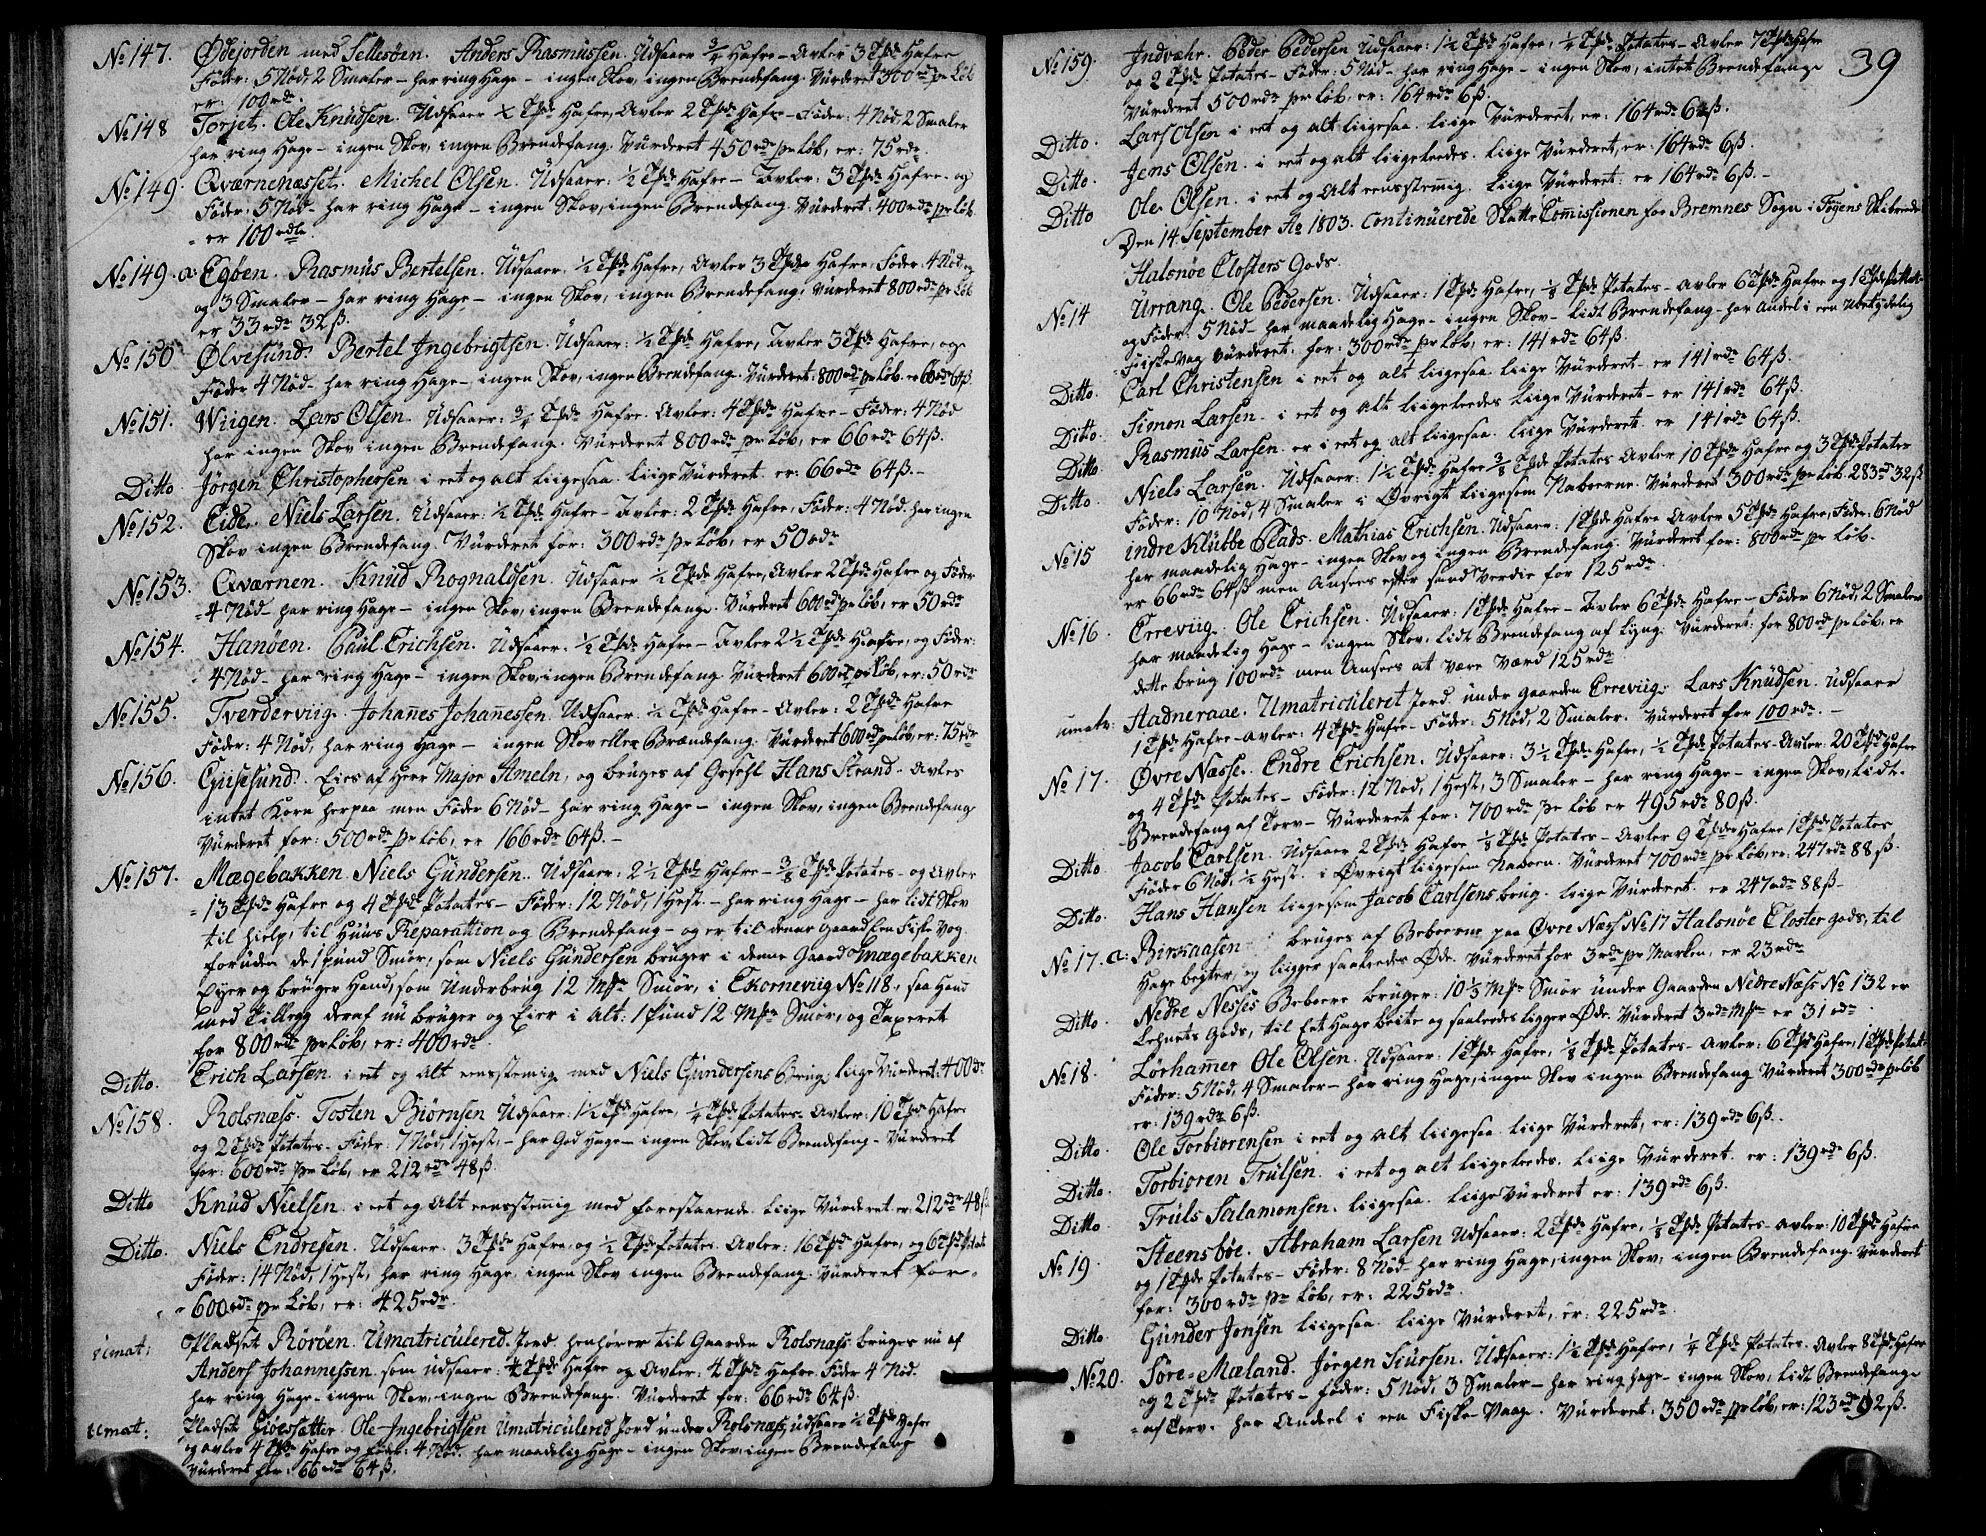 No 147. Ødejorden med Sellesøen. Anders Rasmussen. Udsaaer 3/4 Hafre - Avler 3 Tpd Hafre
Föder: 5 Nöd, 2 Smaler - har ring Hage - ingen Skov, ingen Brendefang. Vurderet 300 rdr pr Löb
er: 100 rdr.
No 148 Torjet. Ole Knudsen. Udsaaer 1/2 Tpdr Hafre, Avler 2 Tpdr Hafre - Föder: 4 Nöd 2 Smaler
har ring Hage - ingen Skov, ingen Brendefang. Vurderet 450 rdr pr Löb, er: 75 rdr.
No 149. Qværnenæsset. Michel Olsen. Udsaaer: 1/2 Tpdr Hafre - Avler: 3 Tpdr Hafre - og
Föder: 5 Nöd - har ring Hage - ingen Skov, ingen Brendefang. Vurderet: 400 rdr pr Löb
er 100 rdlr.
No 149. a. Egöen. Rasmus Bertelsen. Udsaaer. 1/2 Tpdr Hafre, Avler 3 Tpdr Hafre, Föder: 4 Nöd
og 3 Smaler - har ring Hage - ingen Skov, ingen Brendefang. Vurderet 800 rdr pr Löb
er 33 rdr 32 ß.
No 150 Ølvesund. Bertel Ingebrigtsen. Udsaaer: 1/2 Tpdr Hafre, Avler 3 Tpdr Hafre, og
Föder 4 Nöd - har ring Hage - ingen Skov, ingen Brendefang. Vurderet: 800 rdr pr Löb er 66 rdr 64 ß.
No 151. Wiigen. Lars Olsen. Udsaaer: 3/4 Tpdr Hafre. Avler: 4 Tpdr Hafre - Föder: 4 Nöd
har ingen Skov ingen Brendefang. Vurderet 800 rdr pr Löb, er 66 rdr 64 ß.
Ditto. Jörgen Christophersen i eet og alt liigesaa. liige Vurderet. er: 66 rdr 64 ß. -
No 152. Eide. Niels Larsen. Udsaaer: 1/2 Tpdr Hafre - Avler: 2 Tpdr Hafre, Föder: 4 Nöd. har ingen
Skov ingen Brendefang. Vurderet for: 300 rdr pr Löb, er 50 rdr
No 153. Qværnen. Knud Rognaldsen. Udsaaer 1/2 Tpdr Hafre, Avler 2 Tpdr Hafre og Föder
4 Nöd - har ring Hage - ingen Skov, ingen Brendefang. Vurderet 600 rd pr Löb, er 50 rdr
No 154. Hanöen. Paul Erichsen. Udsaaer: 1/2 Tpdr Hafre - Avler 2 1/2 Tpdr Hafre, og Föder:
4 Nöd - har ring Hage - ingen Skov, ingen Brendefang. Vurderet 600 rdr pr Löb, er: 50 rdr
No 155. Tverderviig. Johanes Johanessen. Udsaaer. 1/2 Tpdr Hafre - Avler: 2 Tpdr Hafre
Föder: 4 Nöd, har ring Hage - ingen Skov eller Brændefang. Vurderet 600 rdr pr Löb, er: 75 rdr
No 156. Eyiesund. Eies af Herr Major Ameln, og bruges af Gesehl Hans Strand. Avles
intet Korn herpaa men Föder 6 Nöd - har ring Hage - ingen Skov, ingen Brendefang
Vurderet for: 500 rdr pr Löb, er 166 rdr 64 ß. -
No 157. Mægebakken. Niels Gundersen. Udsaaer: 2 1/2 Tpdr Hafre - 3/8 Tpdr Potates - og Avler
13 Tpdr Hafre og 4 Tpdr Potates - Föder: 12 Nöd, 1 Hest. - har ring Hage - har lidt Skov
til hielp, til Huus Reparattion og Brendefang - og er til denne Gaard Een Fiske Vog.
foruden de 1 pund Smör, som Niels Gundersen bruger i denne Gaard Mægebakken
Eyer og bruger Hand, som Underbrug 12 Mpr Smör, i Ekorneviig No 118, saa Hand
med Tillegg deraf nu bruger og Eier i Alt: 1 pund 12 Mpr Smör, og Taxeret
for 800 rdr pr Löb, er: 400 rdr.
Ditto. Erich Larsen i eet og alt eensstemig med Niels Gundersens Brug. liige Vurderet: 400 rdr
No 158. Rolsnæss. Tosten Biörnsen Udsaaer: 1 1/2 Tpdr Hafre, 1/4 Tpdr Potates. Avler: 10 Tpdr Hafre
og 2 Tpdr Potates - Föder: 7 Nöd, 1 Hest, - har God Hage - ingen Skov, lidt Brendefang - Vurderet
for: 600 rdr pr Löb, er 212 rdr 48 ß.
Ditto Knud Nielsen. i eet og Alt eensstemig med forestaaende. liige Vurderet. er 212 rdr 48 ß
Ditto. Niels Endresen. Udsaaer. 3 Tpdr Hafre, og 1/2 Tpdr Potates. Avler: 16 Tpdr Hafre, og 6 Tpdr Potat
Föder: 14 Nöd, 1 Hest, har ring Hage, ingen Skov ingen Brendefang. Vurderet for
600 rdr pr Löb, er: 425 rdr.
umat: Pladset Röröen. Umatriculered Jord henhörer til Gaarden Rolsnæss bruges nu af
Anders Johannessen som udsaaer: 1/2 Tpdr Hafre og Avler: 4 Tpdr Hafre. Föder 4 Nöd.
har ring Hage - ingen Skov, ingen Brendefang. Vurderet for: 66 rdr 64 ß.
umat: Pladset Giöessætter. Ole Ingebrigtsen Umatriculered Jord under Rolsnæss, udsaaer 1/2 Tpdr Hafre
og avler 4 Tpdr Hafre og Föder: 4 Nöd. har maadelig Hage - ingen Skov, ingen Brendefang
Vurderet for: 66 rdr 64 ß.
39
No 159. Indvæhr. Peder Pedersen Udsaaer: 1 1/2 Tpdr Hafre, 1/4 Tpdr Potates - Avler 7 Tpdr Hafre
og 2 Tpdr Potates - Föder: 5 Nöd - har ring Hage - ingen Skov, intet Brendefang
Vurderet 500 rdr pr Löb, er: 164 rdr 6 ß.
Ditto. Lars Olsen i eet og alt liigesaa. liige Vurderet, er: 164 rdr 6 ß.
Ditto. Jens Olsen. i eet og alt liigeleedes. liige Vurderet, er: 164 rdr 6 ß.
Ditto Ole Olsen. i eet og Alt eensstemig. Liige Vurderet: er 164 rdr 6 ß. -
Den 14 September Ao 1803. Continuerede Skatte Comissionen for Bremnes Sogn i Föyens Skibrede
Halsnöe Closters Gods.
No 14 Urrang. Ole Pedersen. Udsaaer: 1 Tpdr Hafre, 1/8 Tpdr Potates - Avler 6 Tpdr Hafre og 1 Tpdr Potates
og Föder: 5 Nöd - har maadelig Hage - ingen Skov - lidt Brendefang - har Andel i een Ubetydelig
Fiske Vag Vurderet, for: 300 rdr pr Löb, er: 141 rdr 64 ß.
Ditto. Carl Christensen i eet og alt liigesaa liige Vurderet - er 141 rdr 64 ß.
Ditto. Simon Larsen - i eet og Alt liigeleedes liige Vurderet - er 141 rdr 64 ß.
Ditto. Rasmus Larsen. er i eet og alt liigesaa. liige Vurderet. er 141 rdr 64 ß.
Ditto. Niels Larsen. Udsaaer: 1 1/2 Tpdr Hafre 3/8 Tpdr Potates Avler 10 Tpdr Hafre og 3 Tpdr Potates
Föder: 10 Nöd, 4 Smaler i Øvrigt liigesom Naboerne. Vurderet 300 rdr pr Löb. 283 rd 32 ß
No 15 indre Klubbe Plads. Mathias Erichsen. Udsaaer: 1 Tpdr Hafre Avler 5 Tpdr Hafre, Föder: 6 Nöd
har maadelig Hage - ingen Skov og ingen Brendefang. Vurderet for: 800 rdr pr Löb.
er 66 rdr 64 ß men Ansees efter sand Verdie for 125 rdr.
No 16. Erreviig. Ole Erichsen. Udsaaer: 1 Tpdr Hafre - Avler 6 Tpdr Hafre - Föder 6 Nöd, 2 Smaler
har maadelig Hage - ingen Skov, lidt Brendefang af Lyng. Vurderet: for 800 rdr pr Löb, er
dette brug 100 rdr men Ansees at være Værd 125 rdr
umatr: Stadneraae. Umatriculeret Jord under gaarden Erreviig. Lars Knudsen. udsaaer
1 Tpdr Hafre - avler: 4 Tpdr Hafre - Föder: 5 Nöd, 2 Smaler. Vurderet for 100 rdr. -
No 17. Øvre Næsse. Endre Erichsen. Udsaaer: 3 1/2 Tpdr Hafre, 1/2 Tpdr Potates - Avler: 20 Tpdr Hafre
og 4 Tpdr Potates - Föder: 12 Nöd, 1 Hest, 3 Smaler - har ring Hage - ingen Skov, lidt
Brendefang af Torv - Vurderet for: 700 rdr pr Löb er 495 rdr 80 ß.
Ditto. Jacob Carlsen. Udsaaer 2 Tpdr Hafre 1/8 Tpdr Potates - Avler 9 Tpdr Hafre 1 Tpdr Potates
Föder 6 Nöd, 1/2 Hest. i Øvrigt liigesom Naboen. Vurderet 700 rdr pr Löb, er: 247 rdr 88 ß.
Ditto. Hans Hansen liigesom Jacob Carlsens brug. liige Vurderet. er 247 rdr 88 ß -
No 17. a: Birkaasen - bruges af Beboerne paa Øvre Næss No 17 Halsnöe Closter gods, til
Hage beyter, og ligger saaleedes Øde. Vurderet for 3 rdr pr Marken, er 23 rdr
Ditto. Nedre Nesses Beboere bruger: 10 1/3 Mpr Smör under Gaarden Nedre Næss No 132 er
Lehnets Gods, til Eet Hage beite og saaleedes ligger Øde. Vurderet 3 rdr Mpr er 31 rdr.
No 18. Lörhamer Ole Olsen. Udsaaer: 1 Tpdr Hafre, 1/8 Tpdr Potates - Avler: 6 Tpdr Hafre, 1 Tpdr Potat
Föder: 5 Nöd, 4 Smaler - har ring Hage, ingen Skov ingen Brendefang Vurderet 300 rdr pr Löb
er: 139 rdr 6 ß.
Ditto. Ole Torbiörensen i eet og alt liigesaa. liige Vurderet, er: 139 rdr 6 ß.
Ditto. Torbiören Trulsen. i eet og alt liigeleedes. liige Vurderet. er: 139 rdr 6 ß.
Ditto. Truls Salamonsen. liigesaa. liige Vurderet er: 139 rdr 6 ß.
No 19. Steensböe. Abraham Larsen Udsaaer: 2 Tpdr Hafre, 1/8 Tpdr Potates - Avler: 10 Tpdr Hafre
og 1 Tpdr Potates - Föder: 8 Nöd - har ring Hage, ingen Skov, ingen Brendefang. Vurderet
for: 300 rdr pr Löb, er: 225 rdr.
Ditto. Gunder Jonsen liigesaa. liige Vurderet, er: 225 rdr.
No 20. Söre-Mæland. Jörgen Siursen. Udsaaer: 1 1/2 Tpdr Hafre, 1/4 Tpdr Potates. Avler 8 Tpdr Hafre
og 2 Tpdr Potates - föder: 5 Nöd, 3 Smaler - har ring hage - ingen Skov, lidt Brendefang
af Torv. har Andeel i een Fiske-Vaag. Vurderet: 350 rdr pr Löb, er: 123 rdr 92 ß.